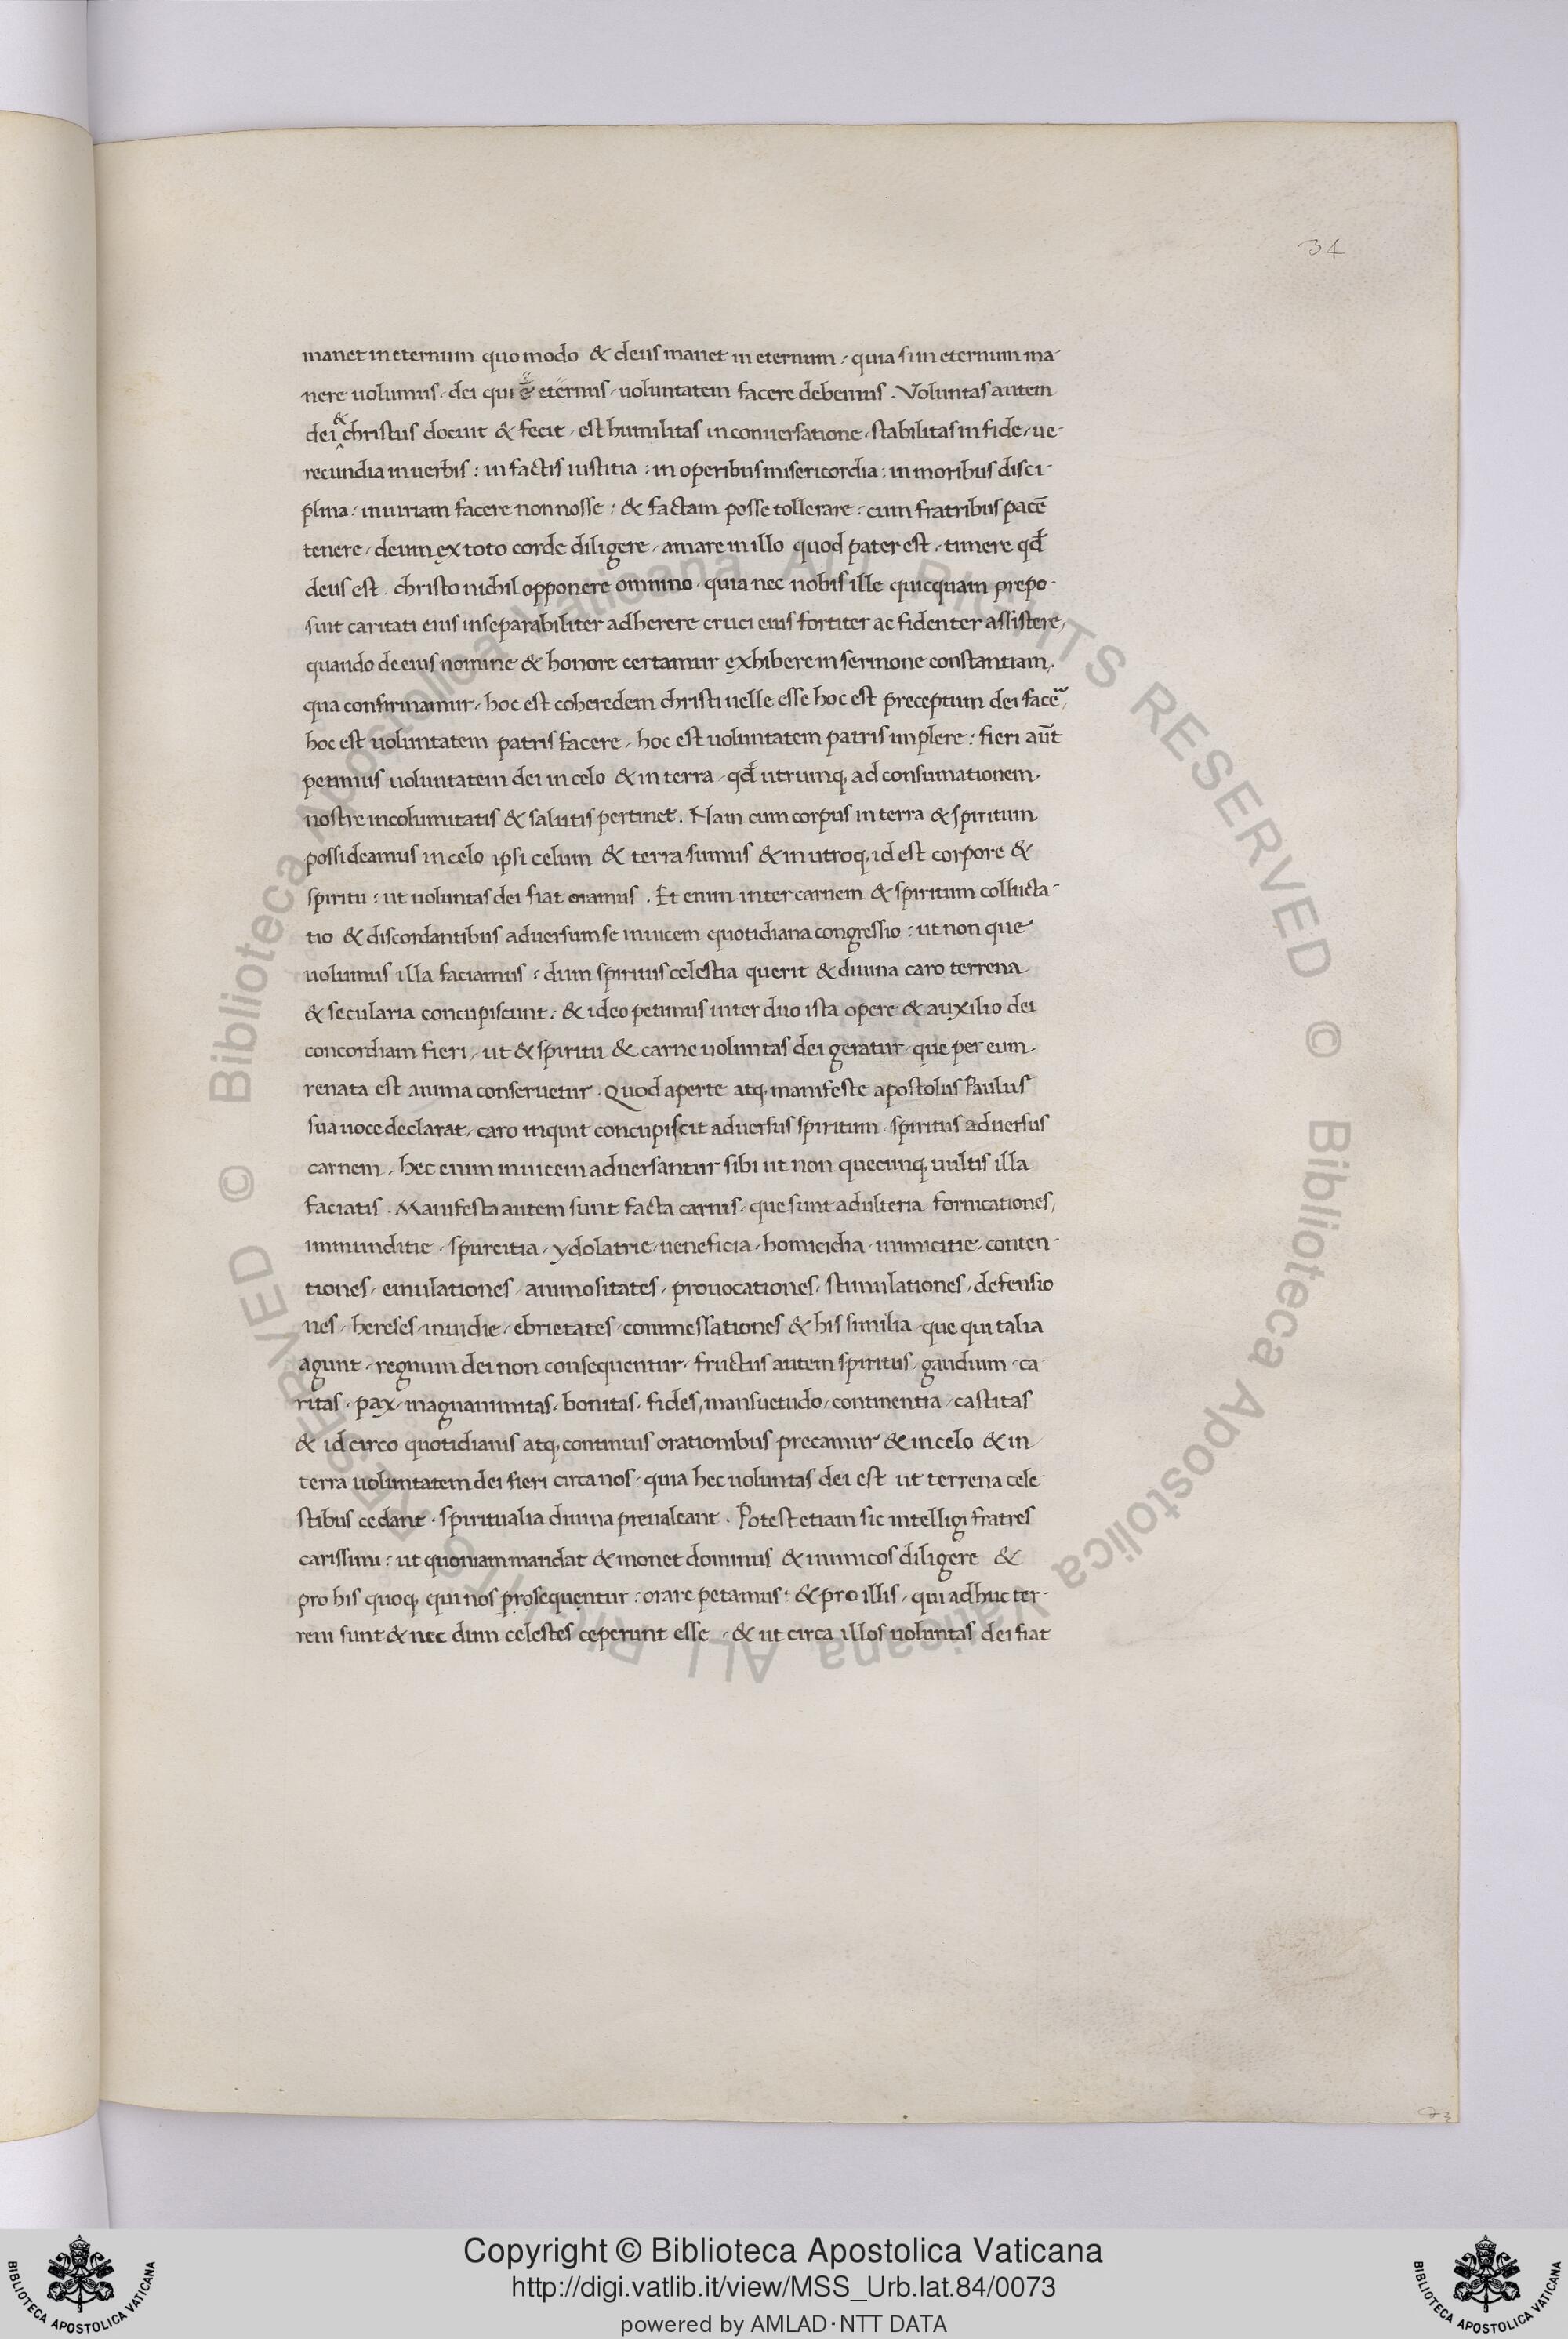 34
manet in eternum quo modo & deus manet in eternum : quia si in eternum ma-
nere uolumus · dei qui ē eternus · uoluntatem facere debemus . Voluntas autem
dei & christus docuit & fecit · est humilitas in conuersatione · stabilitas in fide · ue-
recundia in uerbis : in factis iustitia : in operibus misericordia : in moribus disci-
plina : iniuriam facere non nosse : & factam posse tollerare : cum fratribus pacē
tenere · deum ex toto corde diligere · amare in illo quod pater est · timere qđ
deus est · christo nichil opponere omnino · quia nec nobis ille quicquam prepo-
suit caritati eius inseparabiliter adherere cruci eius fortiter ac fidenter assistere,
quando de eius nomine & honore certamur exhibere in sermone constantiam,
qua confirmamur · hoc est coheredem christi uelle esse hoc est preceptum dei facē,
hoc est uoluntatem patris facere · hoc est uoluntatem patris implere : fieri aūt
petimus uoluntatem dei in celo & in terra · qđ utrunq, ad consumationem
nostre incolumitatis & salutis pertinet . Nam cum corpus in terra & spiritum
possideamus in celo ipsi celum & terra sumus & in utroq, id est corpore &
spiritu : ut uoluntas dei fiat oramus . Et enim inter carnem & spiritum collucta-
tio & discordantibus aduersum se inuicem quotidiana congressio : ut non que
uolumus illa faciamus : dum spiritus celestia querit & diuina caro terrena
& secularia concupiscunt : & ideo petimus inter duo ista opere & auxilio dei
concordiam fieri · ut & spiritu & carne uoluntas dei geratur · que per eum
renata est anima conseruetur . Quod aperte atq, manifeste apostolus Paulus
sua uoce declarat · caro inquit concupiscit aduersus spiritum · spiritus aduersus
carnem · hec enim inuicem aduersantur sibi ut non quecunq, uultis illa
faciatis . Manifesta autem sunt facta carnis · que sunt adulteria · fornicationes,
immunditie · spurcitia · ydolatrie · ueneficia · homicidia · inimicitie · conten-
tiones · emulationes · animositates · prouocationes · stimulationes · defensio
nes · hereses · inuidie · ebrietates · commessationes & his similia · que qui talia
agunt · regnum dei non consequentur · fructus autem spiritus · gaudium · ca-
ritas · pax · magnanimitas · bonitas · fides, mansuetudo · continentia · castitas
& id circo quotidianis atq, continuis orationibus precamur & in celo & in
terra uoluntatem dei fieri circa nos · quia hec uoluntas dei est ut terrena cele-
stibus cedant · spiritualia diuina preualeant . Potest etiam sic intelligi fratres
carissimi : ut quoniam mandat & monet dominus & inimicos diligere &
pro his quoq, qui nos prosequentur : orare petamus · & pro illis · qui adhuc ter-
reni sunt & nec dum celestes ceperunt esse · & ut circa illos uoluntas dei fiat
© Biblioteca Apostolica Vaticana ALL RIGHTS RESERVED © Biblioteca Apostolica Vaticana ALL RIGHTS RESERVED
Copyright © Biblioteca Apostolica Vaticana
http://digi.vatlib.it/view/MSS_Urb.lat.84/0073
powered by AMLAD·NTT DATA
BIBLIOTECA APOSTOLICA VATICANA
BIBLIOTECA APOSTOLICA VATICANA